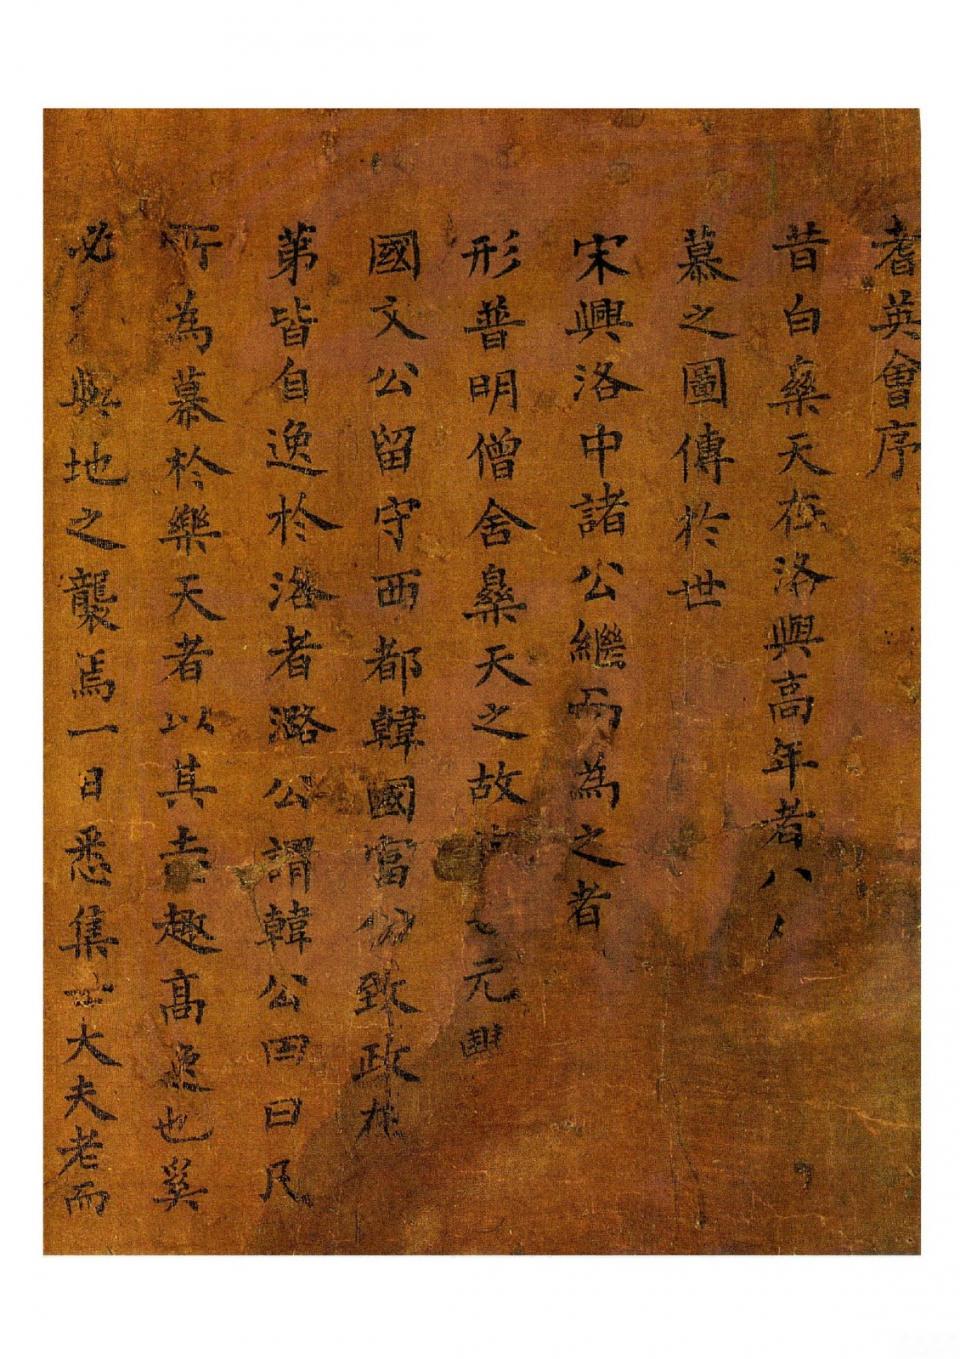 耆英會序
昔白樂天在洛與高年者八人
慕之圖傳於世
宋興洛中諸公繼而為之者
形普明僧舍樂天之故元豐
國文公留守西都韓國富公致政在
第皆自逸於洛者潞公謂韓公曰凡
所為慕於樂天者以其志趣高逸也奚
必與地之襲焉一日悉集士大夫老而